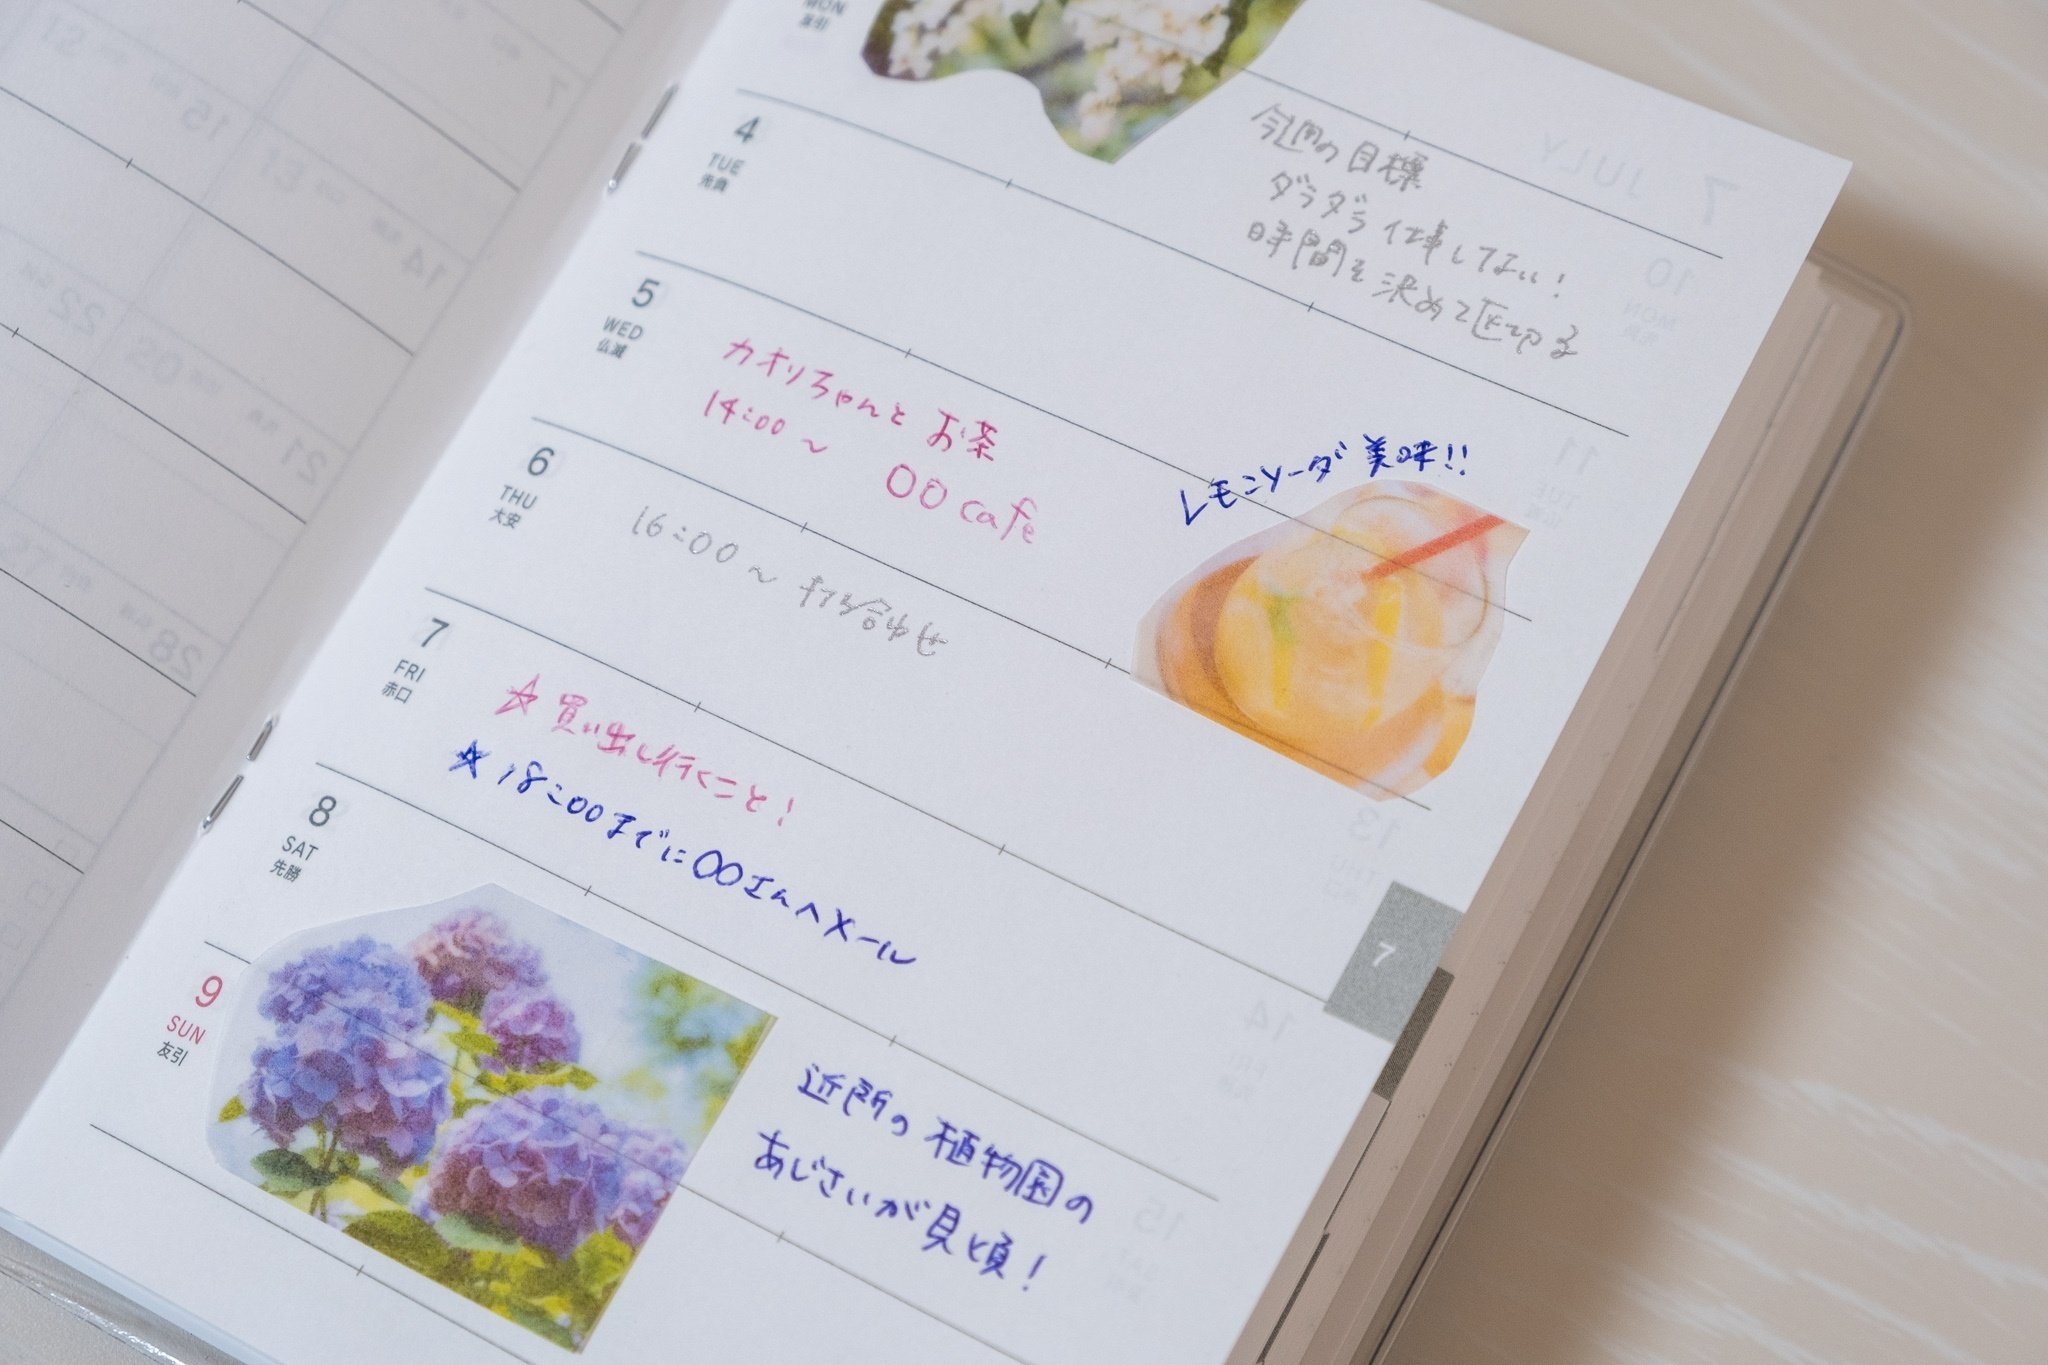 MON
友引
今週の目標
ダラダラ仕事してない!
時間を決めて区切る
4
TUE
先負
5
WED
仏滅
カオリちゃんとお茶
14:00〜 〇〇 cafe
レモンソーダ美味!!
6
THU
大安
16:00〜 打ち合わせ
7
FRI
赤口
☆買い出し行くこと!
☆18:00までに〇〇さんへメール
8
SAT
先勝
7
9
SUN
友引
近所の植物園の
あじさいが見頃!
7 JULY
10
MON
11
TUE
13
14
FRI
15
SAT
7
15
14
22
21
28